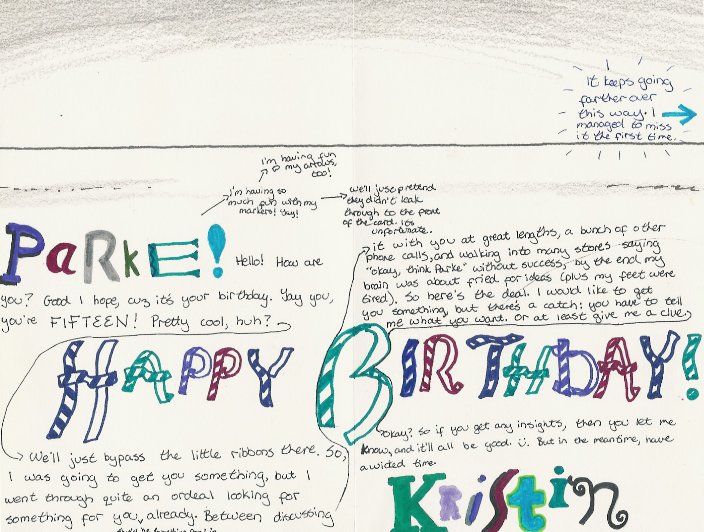 It keeps going
farther over
this way. I
managed to miss
it the first time.
I'm having fun
w/ my arrows,
too!
I'm having so
much fun with my
markers! Yay!
we'll just pretend
they didn't leak
through to the front
of the card. it's
unfortunate..
PARKE! Hello! How are
you? Good I hope, cuz it's your birthday. Yay you,
you're FIFTEEN! Pretty cool, huh?
HAPPY
We'll just bypass the little ribbons there. So,
I was going to get you something, but I
went through quite an ordeal looking for
something for you, already. Between discussing
it with you at great lengths, a bunch of other
phone calls, and walking into many stores saying
"okay, think Parke" without success, by the end my
brain was about fried for ideas (plus my feet were
tired). So here's the deal. I would like to get
you something, but there's a catch: you have to tell
me what you want. Or at least give me a clue,
BIRTHDAY!
okay? So if you get any insights, then you let me
know, and it'll all be good. ü. But in the meantime, have
a wided time.
Kristin